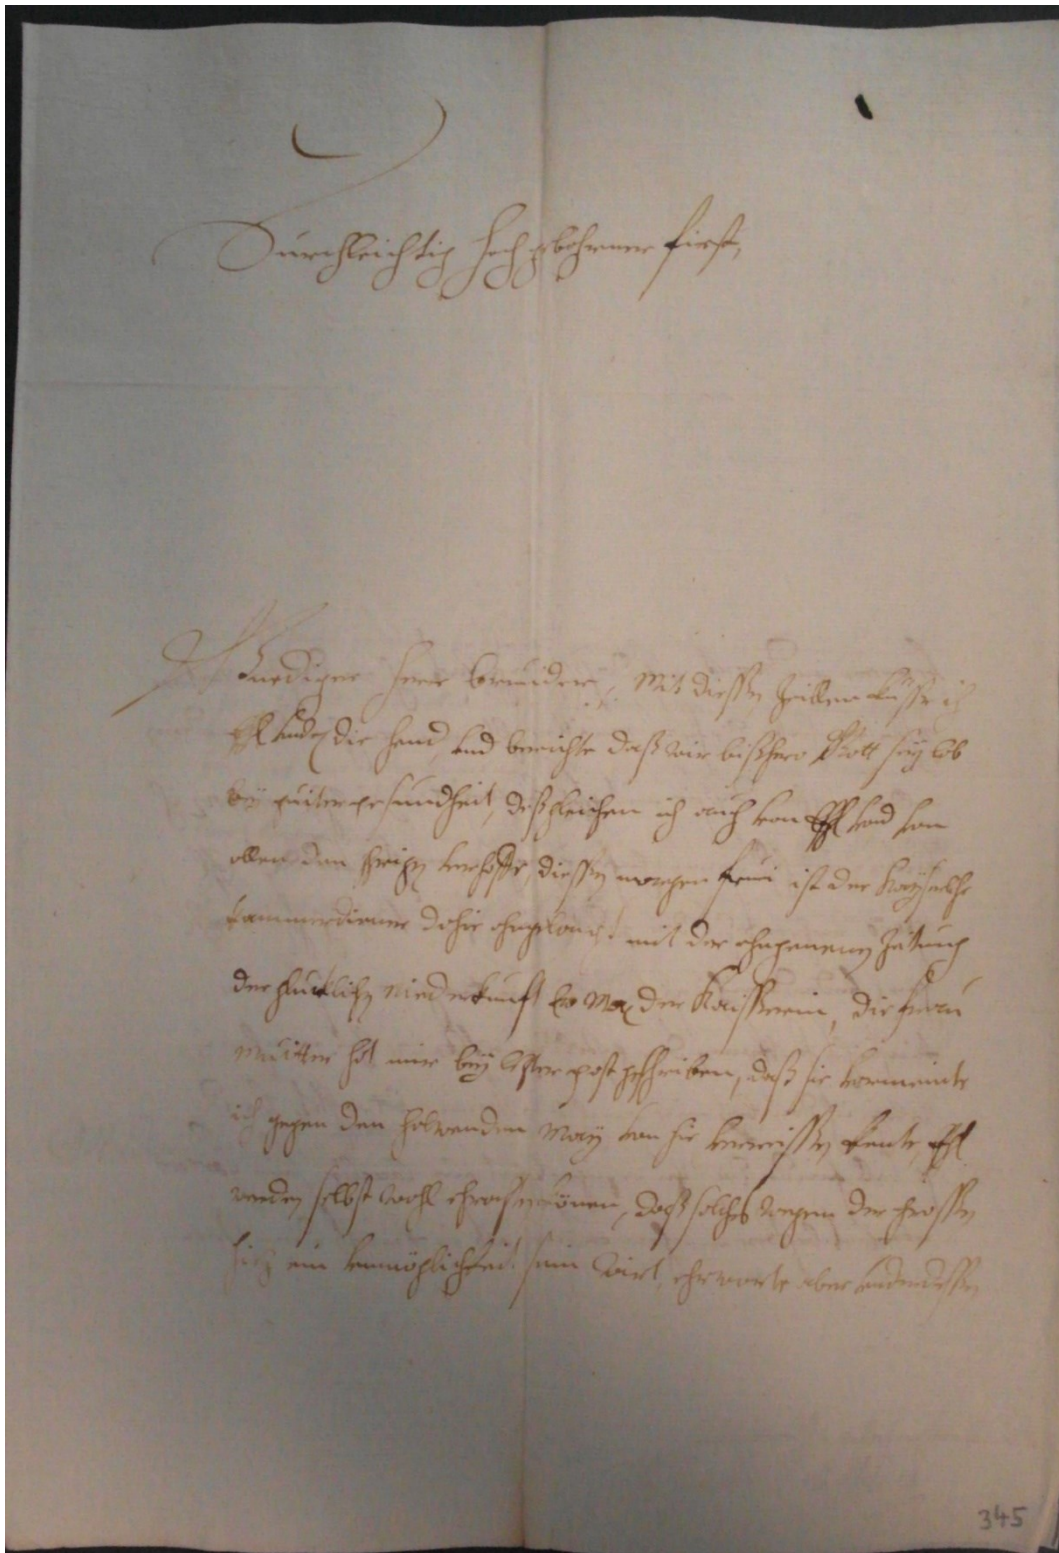 Durchleichtig hoch gebohrner first,
Gnediger herr bruider, Mit diessen Zeillen küsse ich
die hand, und berichte daß wir bißhero Gott sey lob
bey guiter gesundheit, deßgleichen ich auch von
allen den verhoffe, diessen morgen frui ist der Kayserliche
Kammerdiener dahir ahngelangt mit der ahngenemen Zeitung
der glucklichen niederkunft der Kaisserin, die frau
muitter hat mir bey post geschriben, daß sie vermeinte
ich gegen den halbenden May von hir verreissen kente,
werden selbst wohl erachten können, daß solches wegen der grossen
hitz ein unmöglichkeit sein wirt, ehrwarte aber
345